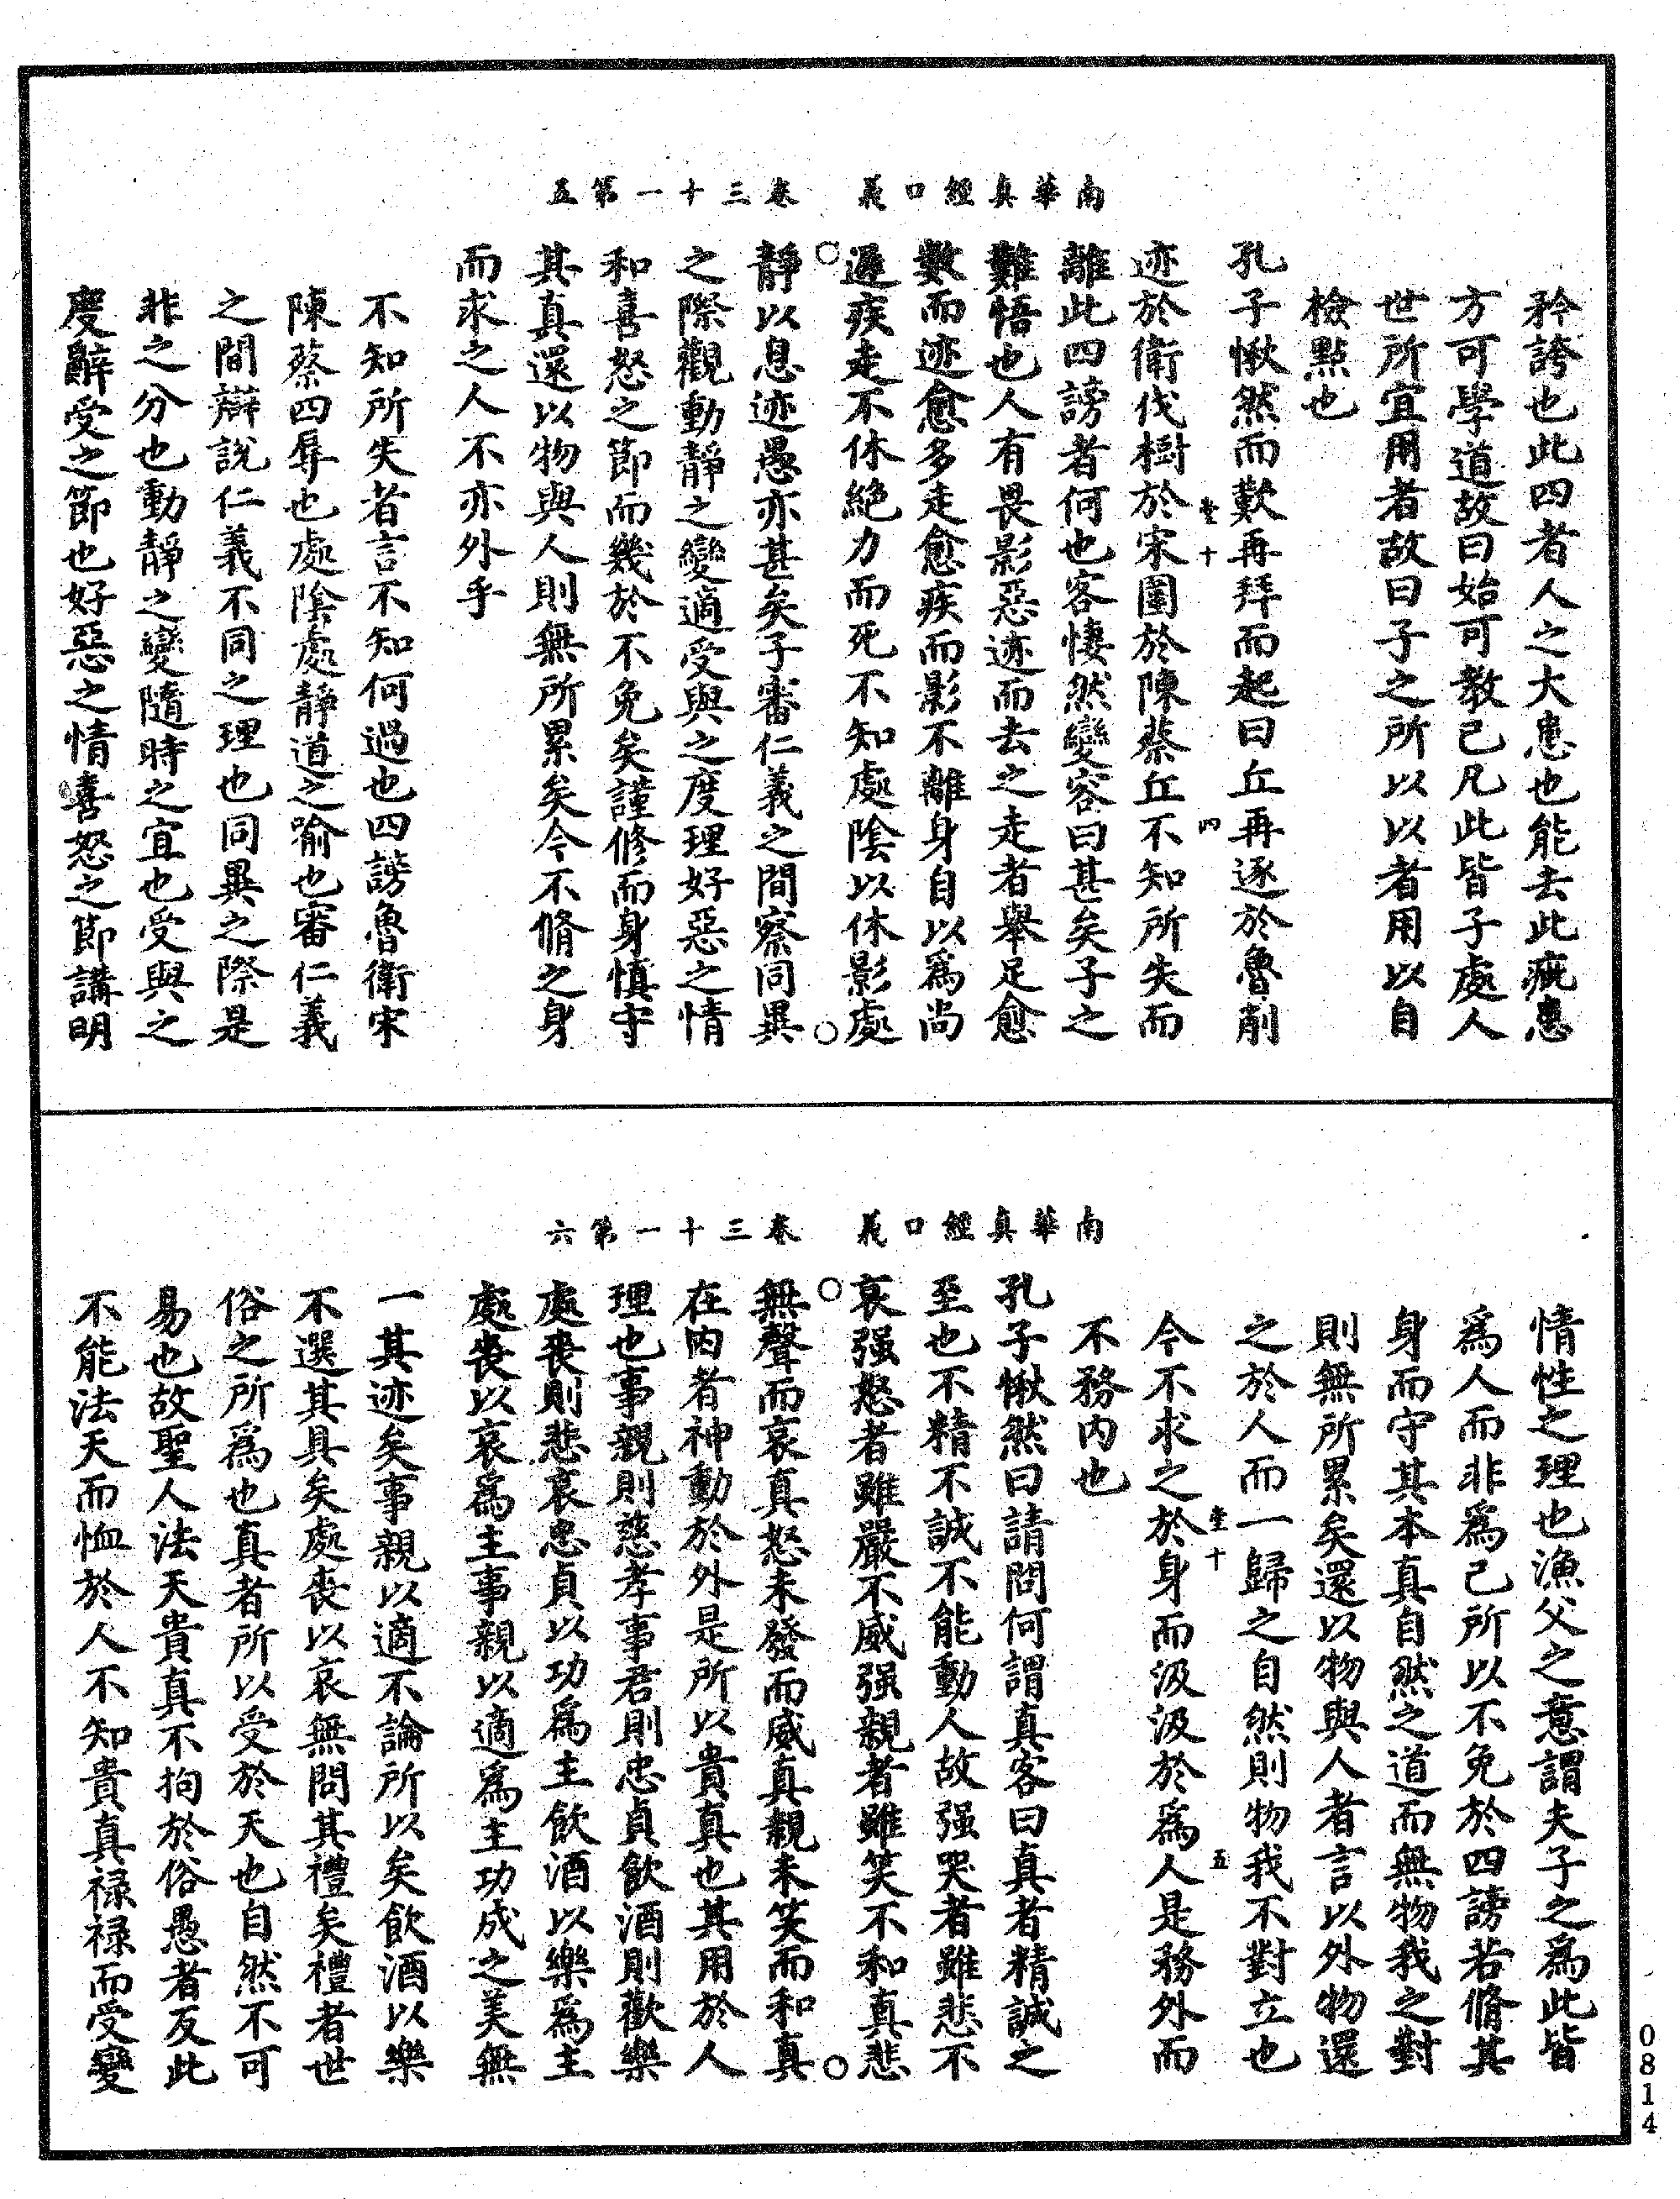 南華真經口義　卷三十一第五
矜誇也此四者人之大患也能去此疵患
方可學道故曰始可教已凡此皆子處人
世所宜用者故曰子之所以以者用以自
檢點也
孔子愀然而歎再拜而起曰丘再逐於魯削
迹於衛伐樹於宋圍於陳蔡丘不知所失而
離此四謗者何也客悽然變容曰甚矣子之
難悟也人有畏影惡迹而去之走者舉足愈
數而迹愈多走愈疾而影不離身自以爲尚
遲疾走不休絕力而死不知處陰以休影處
靜以息迹愚亦甚矣子審仁義之間察同異
之際觀動靜之變適受與之度理好惡之情
和喜怒之節而幾於不免矣謹修而身慎守
其真還以物與人則無所累矣今不脩之身
而求之人不亦外乎
不知所失者言不知何過也四謗魯衛宋
陳蔡四辱也處陰處靜道之喻也審仁義
之間辯說仁義不同之理也同異之際是
非之分也動靜之變隨時之宜也受與之
度辭受之節也好惡之情喜怒之節講明
南華真經口義　卷三十一第六
情性之理也漁父之意謂夫子之爲此皆
爲人而非爲己所以不免於四謗若脩其
身而守其本真自然之道而無物我之對
則無所累矣還以物與人者言以外物還
之於人而一歸之自然則物我不對立也
今不求之於身而汲汲於爲人是務外而
不務内也
孔子愀然曰請問何謂真客曰真者精誠之
至也不精不誠不能動人故强哭者雖悲不
哀强怒者雖嚴不威强親者雖笑不和真悲
無聲而哀真怒未發而威真親未笑而和真
在内者神動於外是所以貴真也其用於人
理也事親則慈孝事君則忠貞飲酒則歡樂
處喪則悲哀忠貞以功爲主飲酒以樂爲主
處喪以哀爲主事親以適爲主功成之美無
一其迹矣事親以適不論所以矣飲酒以樂
不選其具矣處喪以哀無問其禮矣禮者世
俗之所爲也真者所以受於天也自然不可
易也故聖人法天貴真不拘於俗愚者反此
不能法天而恤於人不知貴真祿祿而受變
0814